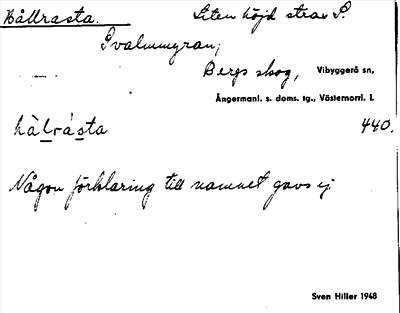 Hållrasta. Liten höjd strax S.
Svalmmyran,
Bergs skog, Vibyggerå sn,
Ångermanl. s. doms. tg., Västernorrl. l.
hàlrásta 440.
Någon förklaring till namnet gavs ej.
Sven Hiller 1948